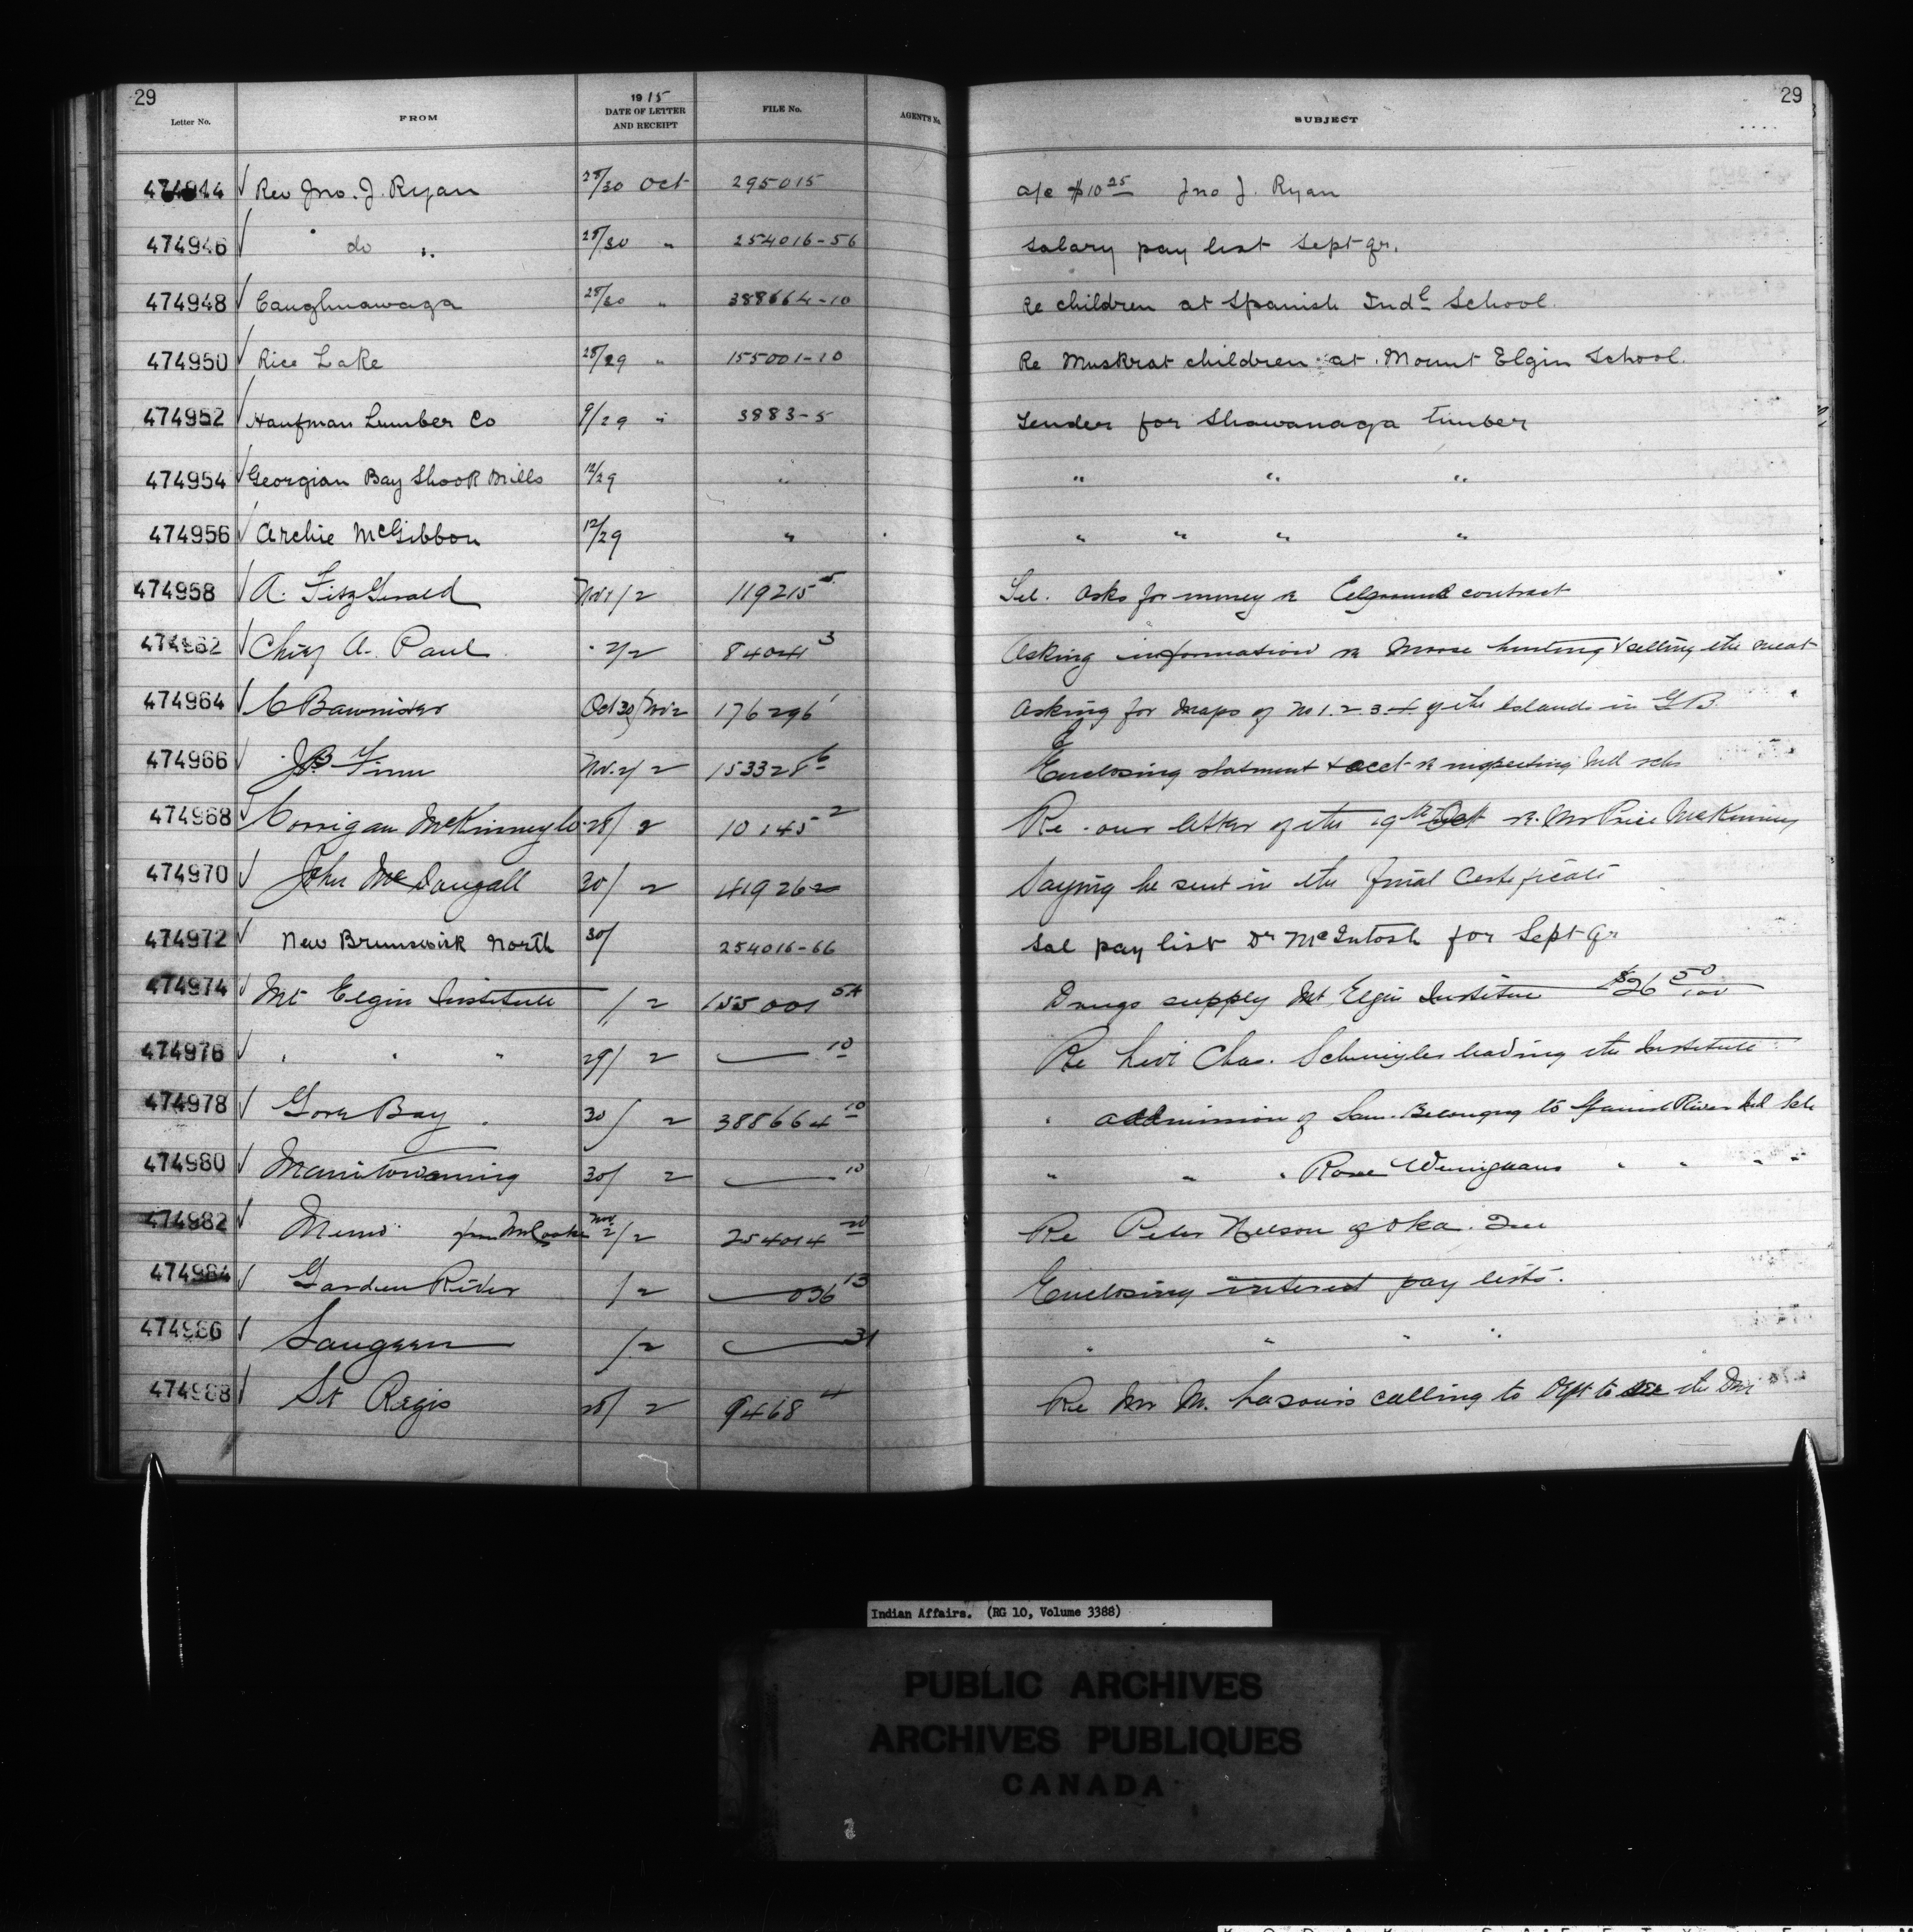 29
29
Letter No. FROM 1915 DATE OF LETTER AND RECEIPT FILE No. AGENT'S No. SUBJECT
474944 √ Rev Jno. J. Ryan 28/30 Oct 295015 a/c $10 25 Jno J. Ryan
474946 √ " do " 28/30 " 254016-56 Salary pay list Sept qr.
474948 √ Caughnawaga 28/30 " 388664-10 Re children at Spanish Indl School.
474950 √ Rice Lake 28/29 " 155001-10 Re Muskrat children at Mount Elgin School.
474952 √ Haufman Lumber Co 9/29 " 3883-5 Tender for Shawanaga timber
474954 √ Georgian Bay Shook Mills 12/29 " " " "
474956 √ Archie McGibbon 12/29 " " " " "
474958 √ A. FitzGerald Nov 1/2 119215 5 Tel. asks for money re Eelground contract
474962 √ Chief A. Paul " 2/2 84041 3 Asking information re Moose hunting & selling the meat
474964 √ C Bannister Oct 30/Nov 2 176296 1 Asking for maps of No 1. 2 3. 4 of the Islands in G B.
474966 √ J.B. Finn Nov. 2/2 153328 6 Enclosing statment & acct re inspecting Ind schs
474968 √ Corrigan McKinney Co 28/2 10145 2 Re our letter of the 19th Oct re Mr Price McKinney
474970 √ John McDougall 30/2 419262 Saying he sent in the final Certificate
474972 √ New Brunswick North 30/ 254016-66 Sal pay list Dr McIntosh for Sept Qr
474974 √ Mt Elgin Institute 1/2 155001 5A Drugs supply Mt Elgin Institue $26 50/100
474976 √ " " " 29/2 — 10 Re Levi Chas. leaving the Institute
474978 √ Gore Bay 30/2 388664 10 " addmission of Sam. to Spanish River Ind Schl
474980 √ Manitowaning 30/2 — 10 " " " Rose " " " "
474982 √ Memo from Mr Cooke Nov 2/2 254014 20 Re Peter Nelson of Oka. Que
474984 √ Garden River 1/2 — 036 13 Enclosing interest pay lists.
474986 √ Saugeen 1/2 — 31 " " " "
474988 √ St Regis 28/2 9468 4 Re Mr M. Lazouis calling to Dept to see the
Indian Affairs. (RG 10, Volume 3388)
PUBLIC ARCHIVES
ARCHIVES PUBLIQUES
CANADA